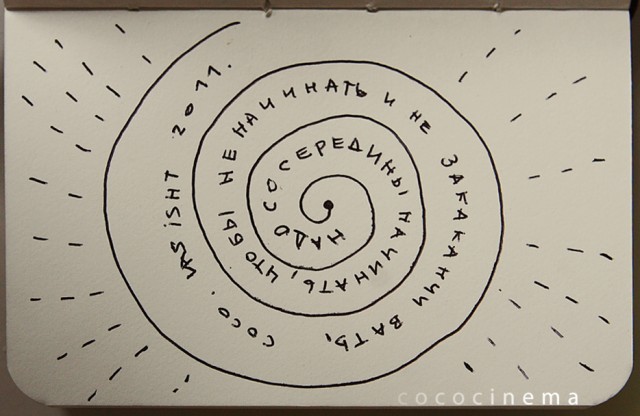 НАДО СО СЕРЕДИНЫ НАЧИНАТЬ, ЧТОБЫ НЕ НАЧИНАТЬ И НЕ ЗАКАКАНЧИВАТЬ, COCO. VASiSHT 2011.
cococinema